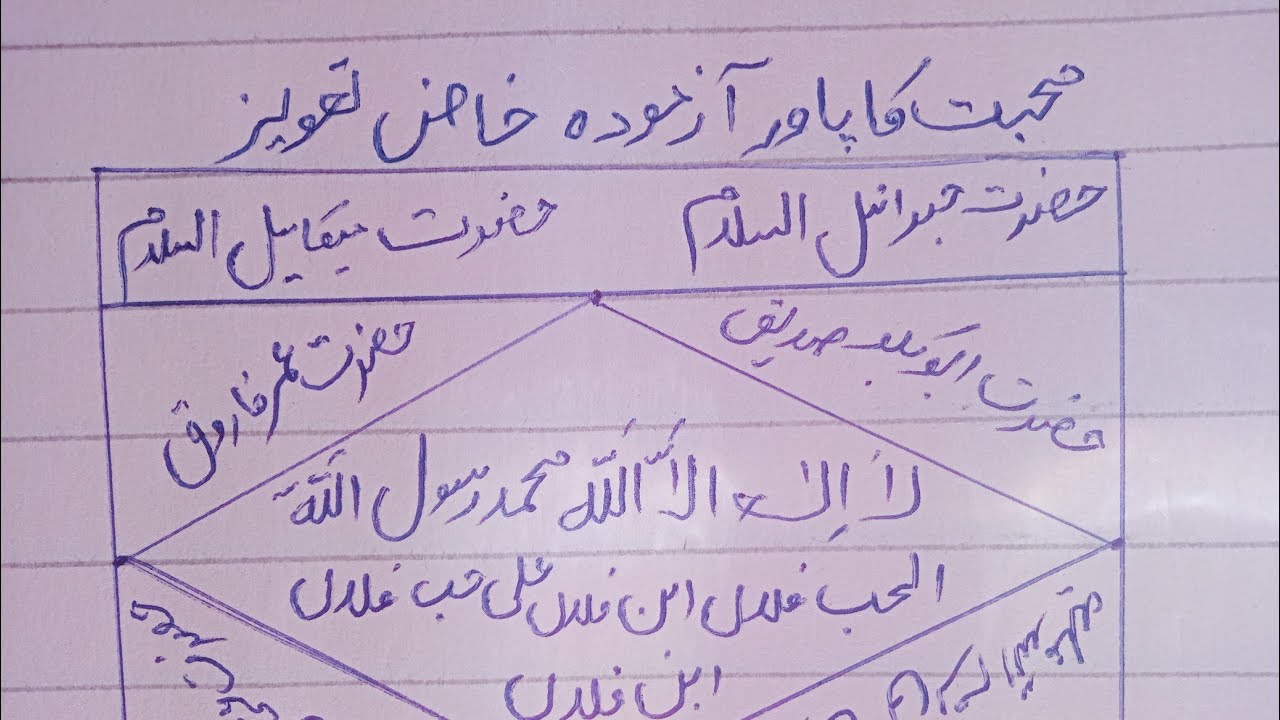 محبت کا پاور آزمودہ خاض تعویز
حضرت جبرائیل السلام
حضرت میکاییل السلام
حضرت ابوبکر صدیق
حضرت عمر فاروق
لَا اِلٰہ الاَّ اللّٰہ محمد رسول اللّٰہ
الحب فلاں ابن فلاں علی حب فلاں
ابن فلاں